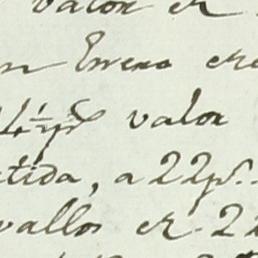 valor er
en Enero er
4½ p͞s valor
tida, a 22 p͞s.
vallos er. 22